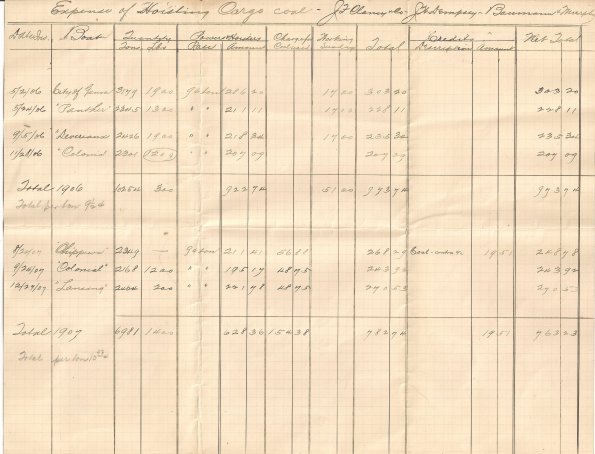 Expense of Hoisting Cargo coal - J F Clancy & Co - J W Dempsey - Baumann & Murphy
Date Boat Quantity Tons Lbs Power Rate Amount Charges Total Credits Description Amount Net Total
5/2/06 City of Genoa 3179 1900 9¢ ton 286 20 17 00 303 20 303 20
5/24/06 "Panther" 2345 1300 " " 211 11 17 00 228 11 228 11
9/15/06 "Devereaux 2426 1900 " " 218 34 17 00 235 34 235 34
11/28/06 "Colonial 2301 1200 " " 207 09 207 09 207 09
Total 1906 10254 300 922 74 51 00 973 74 973 74
Total per ton 9½¢
8/24/07 "Chippewa 2349 — 9¢ ton 211 41 56 88 268 29 19 51 248 78
9/24/07 "Colonial" 2168 1200 " " 195 17 48 75 243 92 243 92
12/29/07 "Lansing" 2464 200 " " 221 78 48 75 270 53 270 53
Total 1907 6981 1400 628 36 154 38 782 74 19 51 763 23
Total per ton